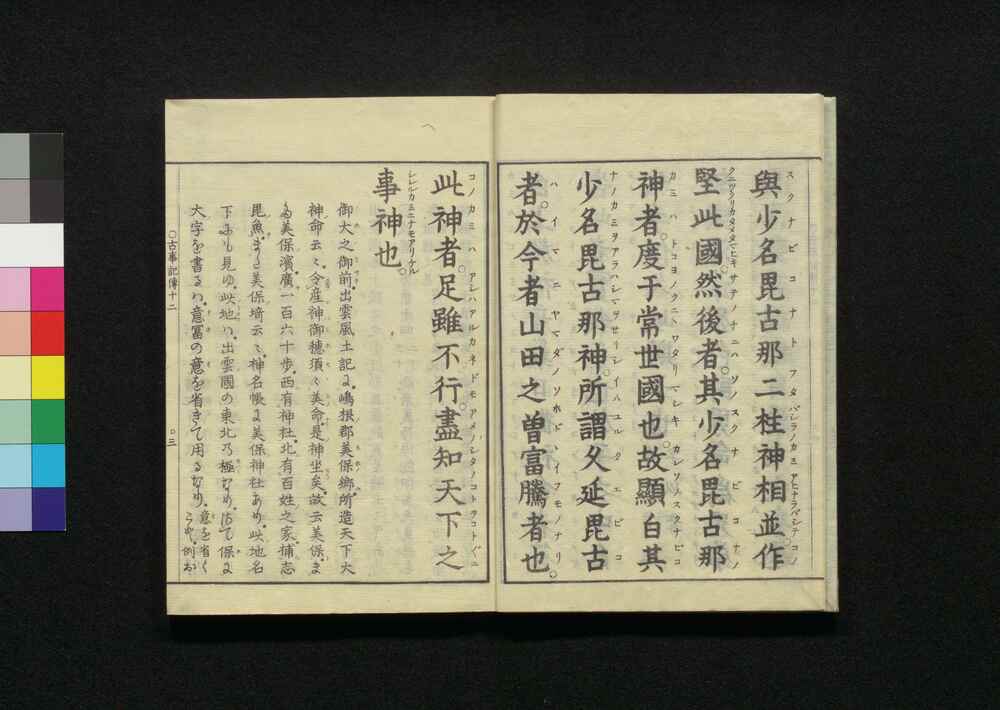 與少名毘古那二柱神相並作
堅此國然後者。其少名毘古那
神者。度于常世國也。故顯白其
少名毘古那神。所謂久延毘古
者。於今者山田之曽富騰者也。
此神者。足雖不行盡知天下之
事神也。
御大之御前。出雲風土記に。嶋根郡美保鄉。所造天下大
神命云々。令産神御穗須々美命。是神坐矣。故云美保。ま
た美保濱廣一百六十步。西有神社。北有百姓之家。捕志
毘魚。また美保埼云々。神名帳に美保神社あり。此地名
下にも見ゆ。此地ハ。出雲國の東北乃極なり。
大字を書るハ。意富の意を省きて用るなり。意を省く
○古事記傳十二
○三